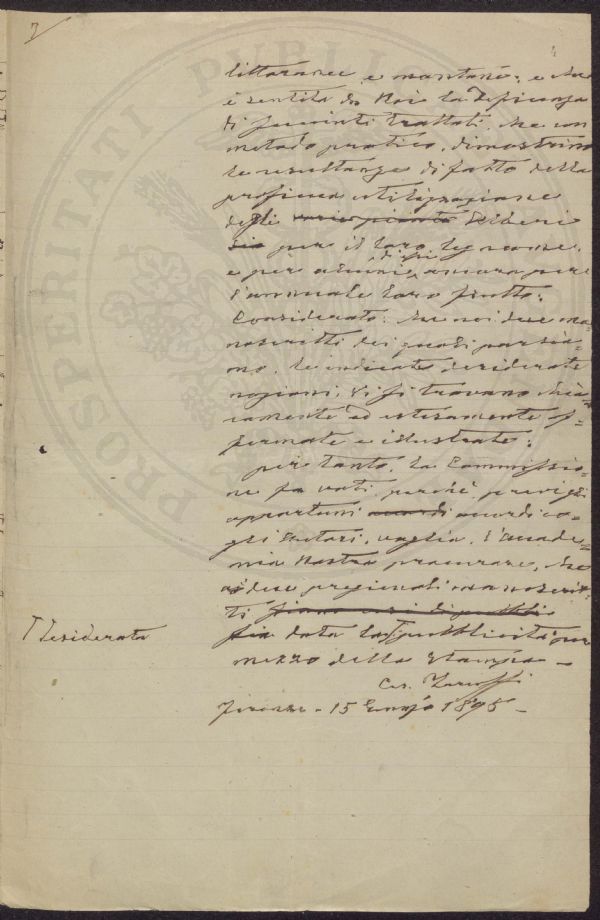 7
littoranee, e montane; e che
è sentita da Noi la deficienza
di trattati, che con
metodo pratico, dimostrino
le resultanze di fatto della
proficua utilizzazione
degli Alberi
per il loro legname,
e per alcuni, ancora per
l'annuale loro frutto:
Considerato: che nei due ma-
noscritti dei quali parlia-
mo, le indicate desiderate
nozioni, vi si trovano chia-
ramente ed estesamente af-
fermate e illustrate:
per tanto, la Commissio-
ne fa voti, perchè previ gli
opportuni accordi co-
gli Autori, voglia, l'Accade-
mia Nostra procurare, che
ai due pregionati manoscrit-
ti
sia data la pubblicità per
desiderata
mezzo della Stampa —
Firenze - 15 1895 -
PROSPERITATI PUBLICAE